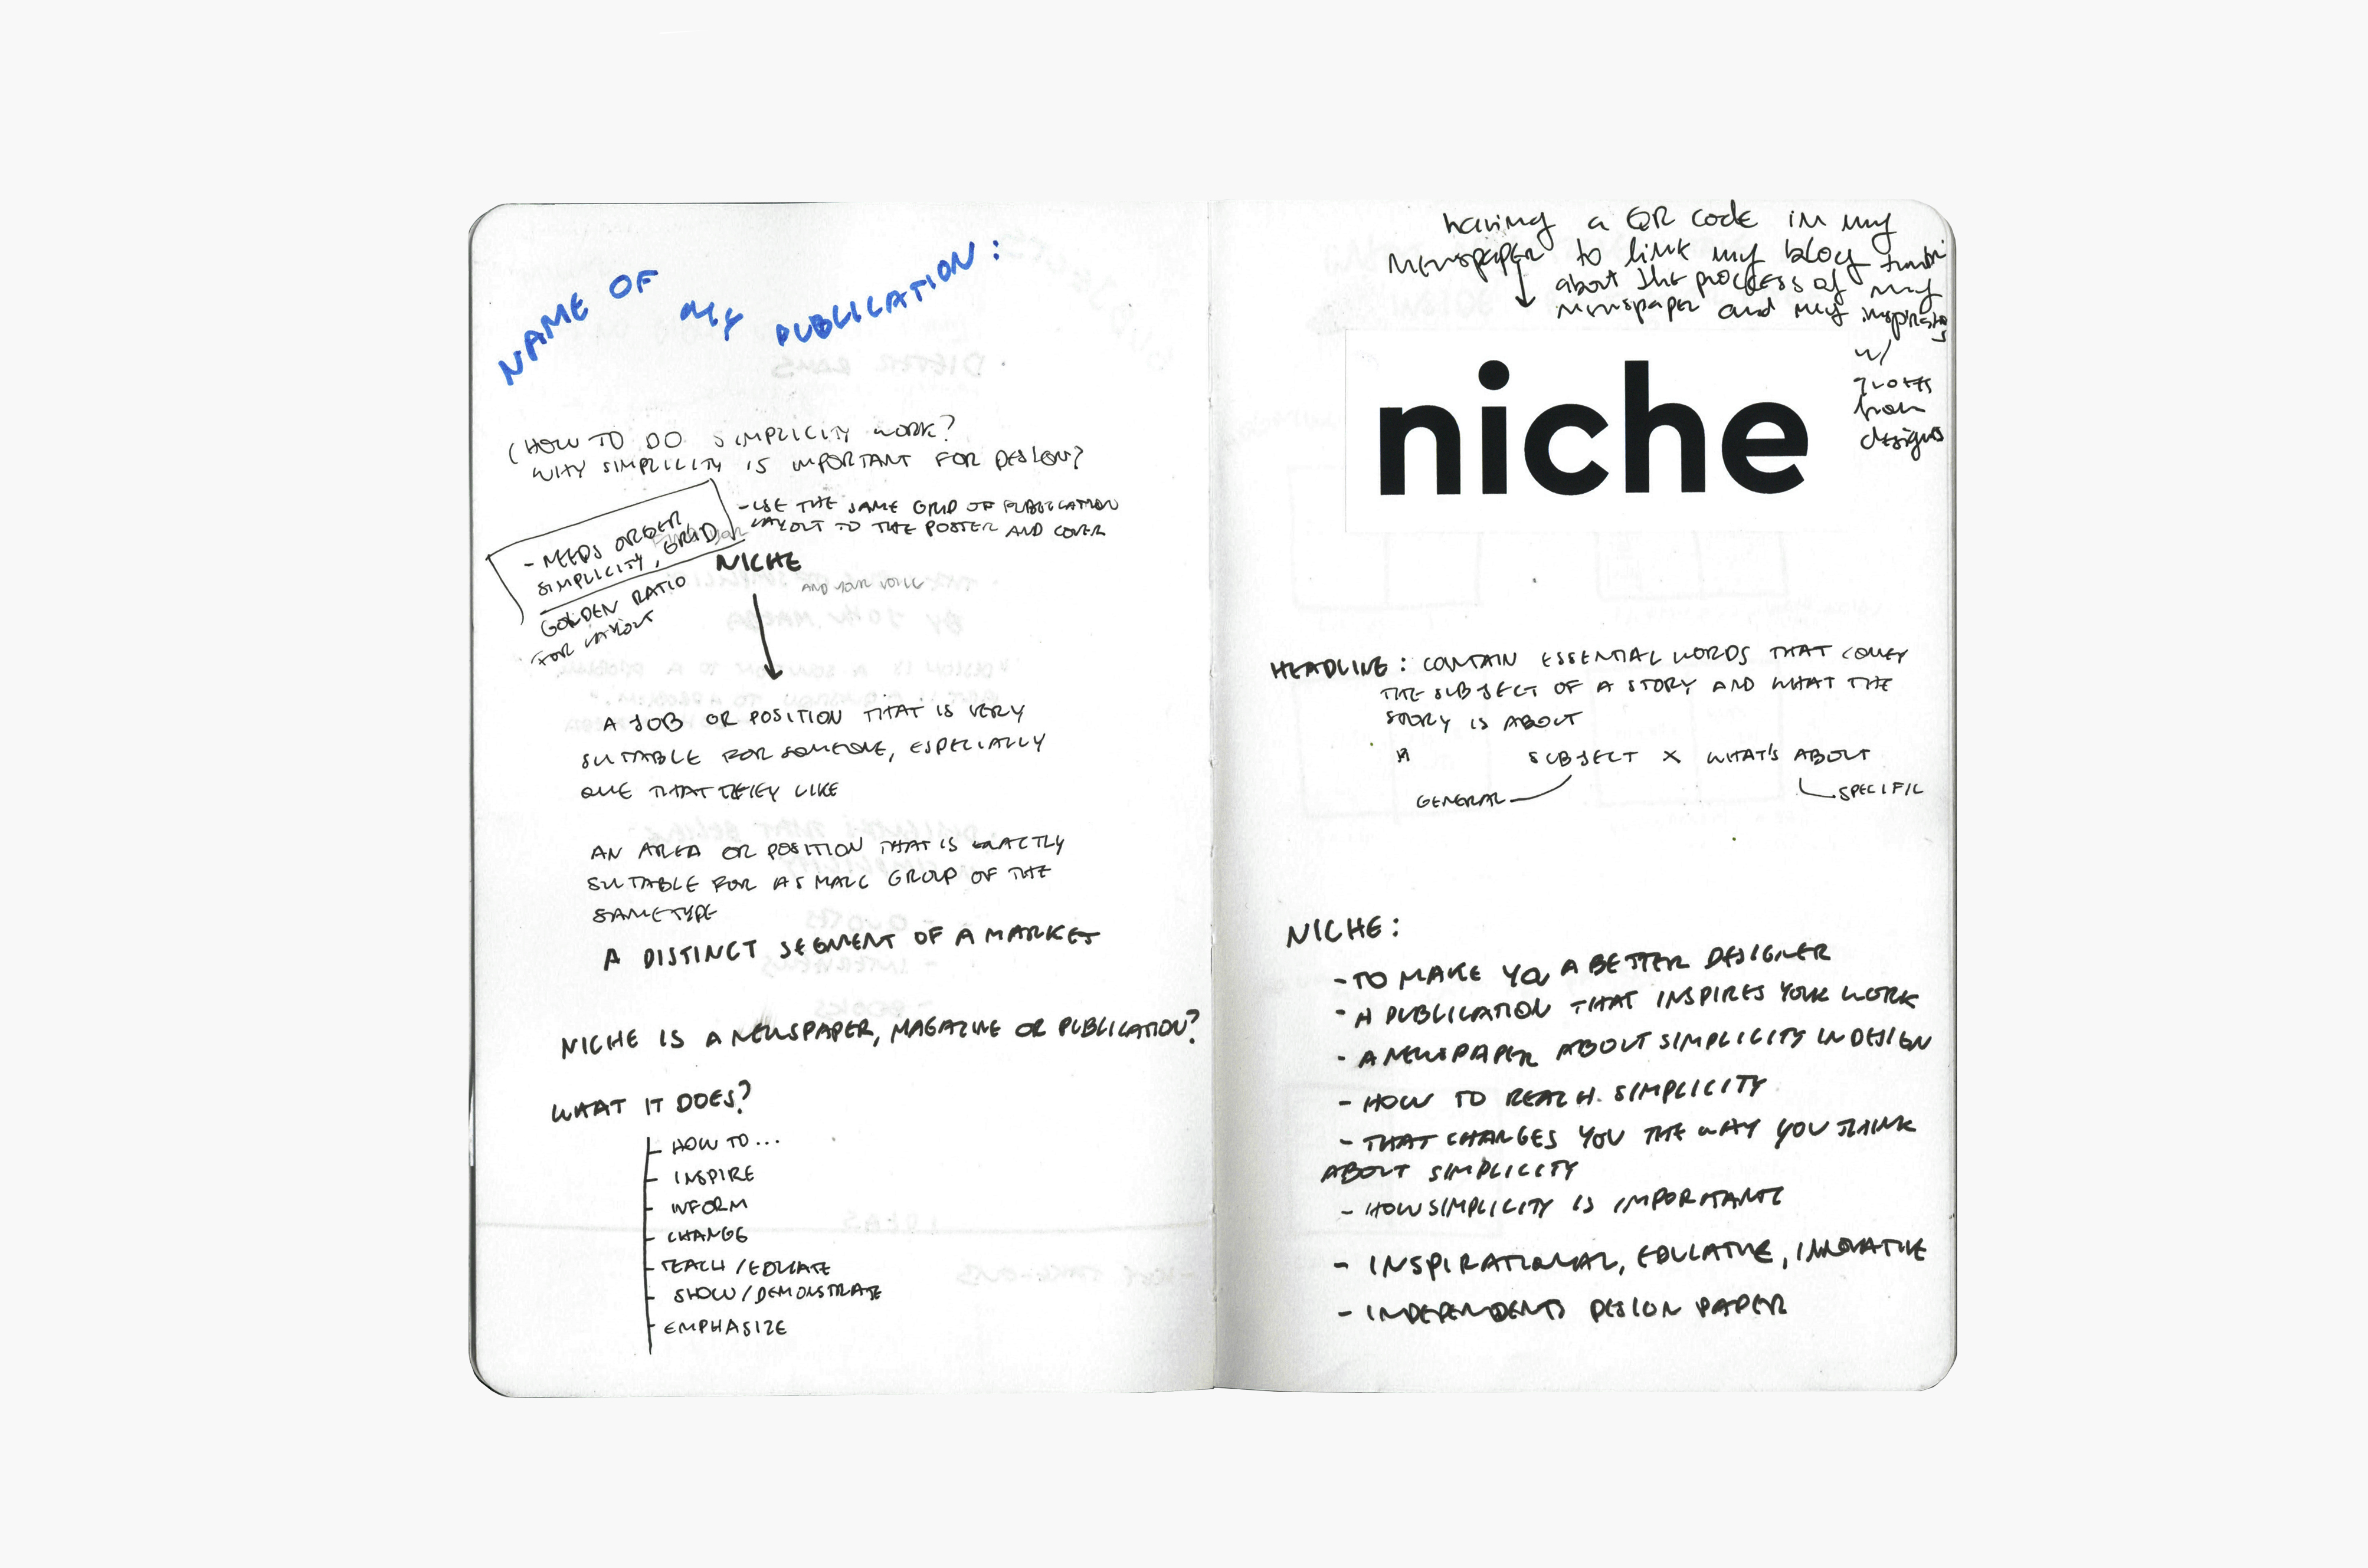 NAME OF MY PUBLICATION:
(HOW TO DO SIMPLICITY WORK?
WHY SIMPLICITY IS IMPORTANT FOR DESIGN?
- NEEDS ORDER
SIMPLICITY, GRID
GOLDEN RATIO
FOR LAYOUT
- USE THE SAME GRID OF PUBLICATION
LAYOUT TO THE POSTER AND COVER
NICHE
AND YOUR VOICE
A JOB OR POSITION THAT IS VERY
SUITABLE FOR SOMEONE, ESPECIALLY
ONE THAT THEY LIKE
AN AREA OR POSITION THAT IS EXACTLY
SUITABLE FOR A SMALL GROUP OF THE
SAME TYPE
A DISTINCT SEGMENT OF A MARKET
NICHE IS A NEWSPAPER, MAGAZINE OR PUBLICATION?
WHAT IT DOES?
HOW TO...
INSPIRE
INFORM
CHANGE
TEACH / EDUCATE
SHOW / DEMONSTRATE
EMPHASIZE
having a QR code in my
newspaper to link my blog
about the process of my
newspaper and my
w/
quotes
from
niche
HEADLINE: CONTAIN ESSENTIAL WORDS THAT CONVEY
THE SUBJECT OF A STORY AND WHAT THE
STORY IS ABOUT
SUBJECT X WHAT'S ABOUT
GENERAL
SPECIFIC
NICHE:
- TO MAKE YOU A BETTER DESIGNER
- A PUBLICATION THAT INSPIRES YOUR WORK
- A NEWSPAPER ABOUT SIMPLICITY IN DESIGN
- HOW TO REACH SIMPLICITY
- THAT CHANGES YOU THE WAY YOU THINK
ABOUT SIMPLICITY
- HOW SIMPLICITY IS IMPORTANT
- INSPIRATIONAL, EDUCATIVE, INNOVATIVE
- INDEPENDENTS DESIGN PAPER